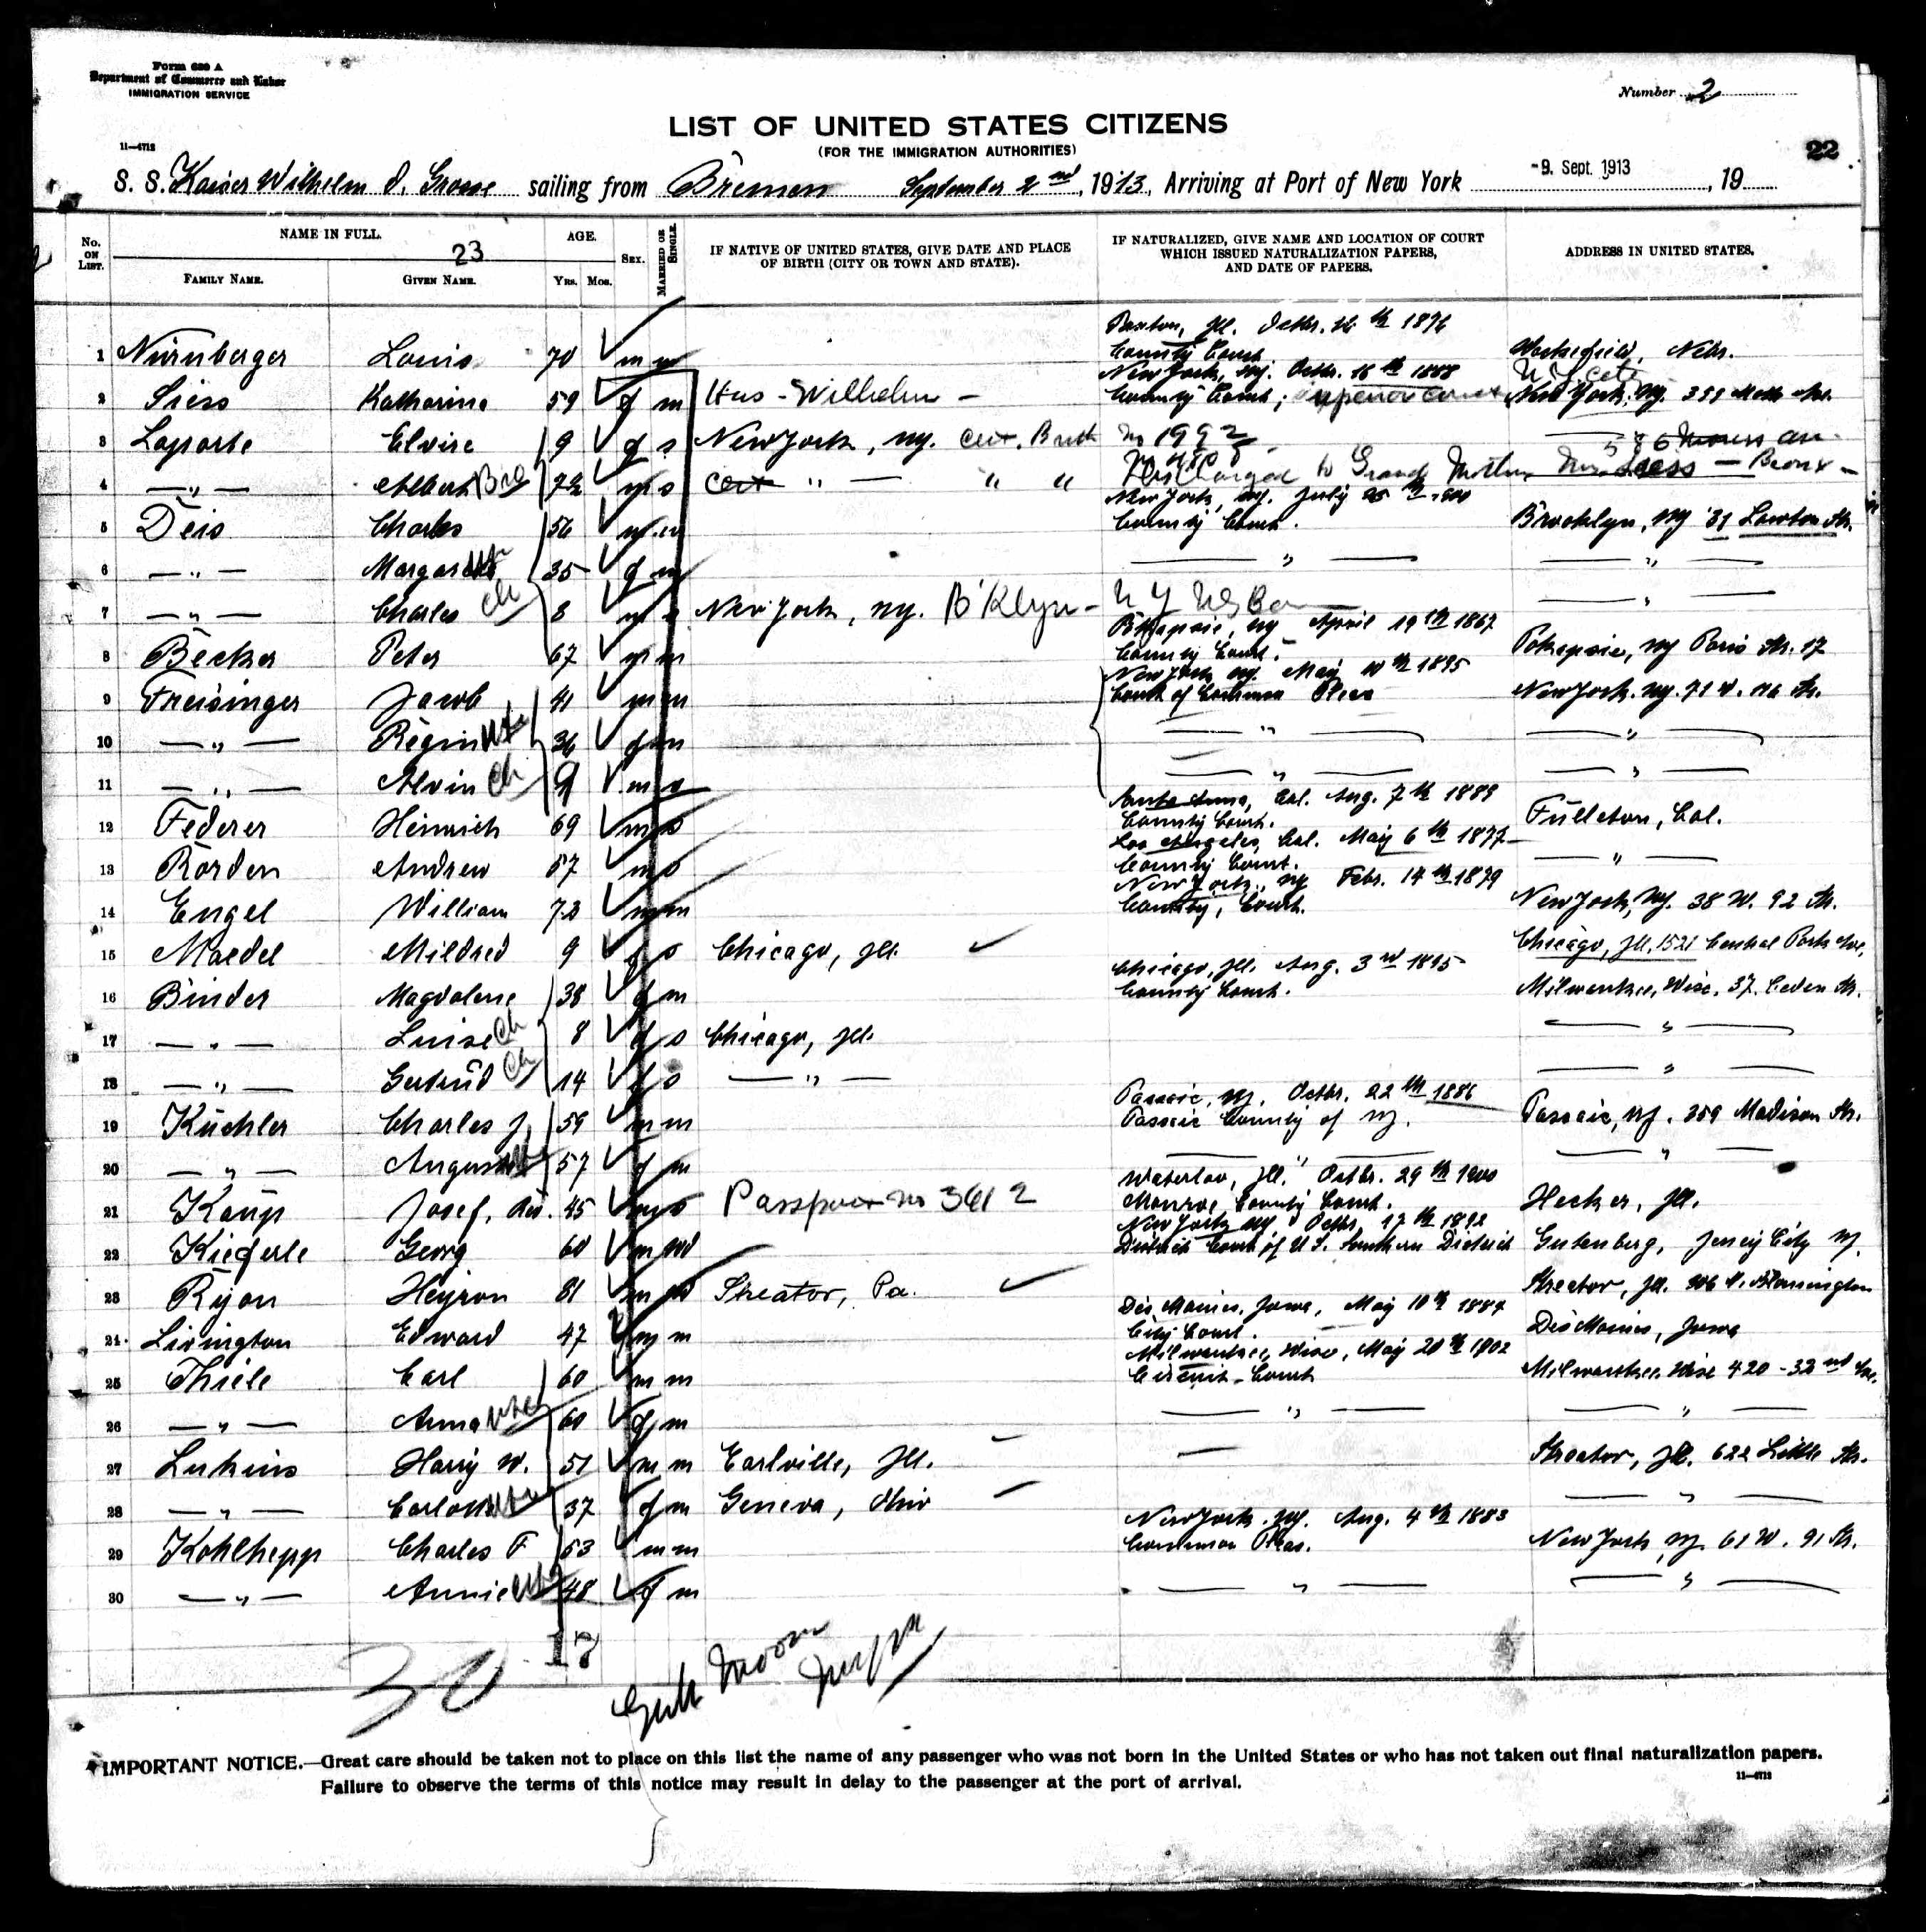 Form 630 A
Department of Commerce and Labor
IMMIGRATION SERVICE
Number 2
LIST OF UNITED STATES CITIZENS
(FOR THE IMMIGRATION AUTHORITIES)
11—4712
22
S. S. Kaiser Wilhelm d. Grosse sailing from Bremen September 2nd, 1913, Arriving at Port of New York -9. Sept. 1913, 19
No. ON LIST. NAME IN FULL. 23 AGE. SEX. MARRIED OR SINGLE. IF NATIVE OF UNITED STATES, GIVE DATE AND PLACE OF BIRTH (CITY OR TOWN AND STATE). IF NATURALIZED, GIVE NAME AND LOCATION OF COURT WHICH ISSUED NATURALIZATION PAPERS, AND DATE OF PAPERS. ADDRESS IN UNITED STATES.
FAMILY NAME. GIVEN NAME. YRS. MOS.
Paxton, Ill. Octbr. 1876
1 Nürnberger Louis 70 m m County Court. Nebr.
New York, Ny. Octbr. 18th 1888 N Y City
2 Siess Katharina 59 f m Hus - Wilhelm - County Court; Superior Court New York, Ny.
3 Laporte Elvire 9 f s New York, Ny. Cert. Birth No 1992
4 — " — Albert Bro m s Cert " — " " Discharged to Grand Mother Mrs Siess — Bronx —
New York, Ny. July 25th
5 Deis Charles 56 m m County Court. Brooklyn, Ny 31 Lawton Str.
6 — " — Margarete 35 f m — " — — " —
7 — " — Charles ch 8 m s New York, Ny. B'Klyn - — " —
Pokepsie, Ny April 19th 1867
8 Becker Peter 67 m m County Court. Pokepsie, Ny Paris Str. 17
New York Ny. May 10th 1895
9 Freisinger Jacob 41 m m Court of Common Pleas New York. Ny.
10 — " — Regin 36 f m — " — — " —
11 — " — Alvin Ch 9 m s — " — — " —
Santa Anna, Cal. Aug. 7th 1889
12 Federer Heinrich 69 m s County Court. Fülleton, Cal.
Los Angeles, Cal. May 6th 1877
13 Rorden Andrew 57 m s County Court. — " —
New York, Ny Febr. 14th 1879
14 Engel William 73 m m County, Court. New York, Ny. 38 W. 92 Str.
15 Maedel Mildred 9 f s Chicago, Ill. Chicago, Ill. 1521 Central Park Ave,
Chicago, Ill. Aug. 3rd 1895
16 Binder Magdalene 38 f m County Court. Milwaukee, Wisc. 37. Ceder Str.
17 — " — Luise Ch 8 f s Chicago, Ill. — " —
18 — " — Gertrüd Ch 14 f s — " — — " —
Passaic, Ny. Octbr. 22th 1886
19 Küchler Charles J. 59 m m Passaic County of Ny. Passaic, Ny. 359 Madison Str.
20 — " — 57 f m — " — — " —
Waterloo, Ill. Octbr. 29th 1900
21 Kaup Josef, 45 m s Passport No 3612 Monroe County Court. Hecker, Ill.
New York Ny. Octbr. 17th 1892
22 Kieferle Georg 60 m wd District Court of U.S. Southern District Gutenberg, Jersey City Ny.
23 Ryon 61 m Streator, Pa. Streator, Ill.
Des Moines, Jowa, May 10th 1887
24. Livington Edward 47 m m City Court. Des Moines, Jowa
Milwaukee, Wisc, May 20th 1902
25 Thiele Carl 60 m m Circuit-Court Milwaukee, Wisc 420 - 32nd Ave.
26 — " — Anna wife 60 f m — " — — " —
27 Lukins Harry W. 51 m m Earlville, Ill. — Streator, Ill. 622 Little Str.
28 — " — 37 f m Geneva, Ohio — " —
New York. Ny. Aug. 4th 1883
29 Kohlhepp Charles F 53 m m Common Pleas. New York, Ny. 61 W. 91 Str.
30 — " — Annie 48 f m — " — — " —
17
30
IMPORTANT NOTICE.—Great care should be taken not to place on this list the name of any passenger who was not born in the United States or who has not taken out final naturalization papers.
Failure to observe the terms of this notice may result in delay to the passenger at the port of arrival.
11—4712